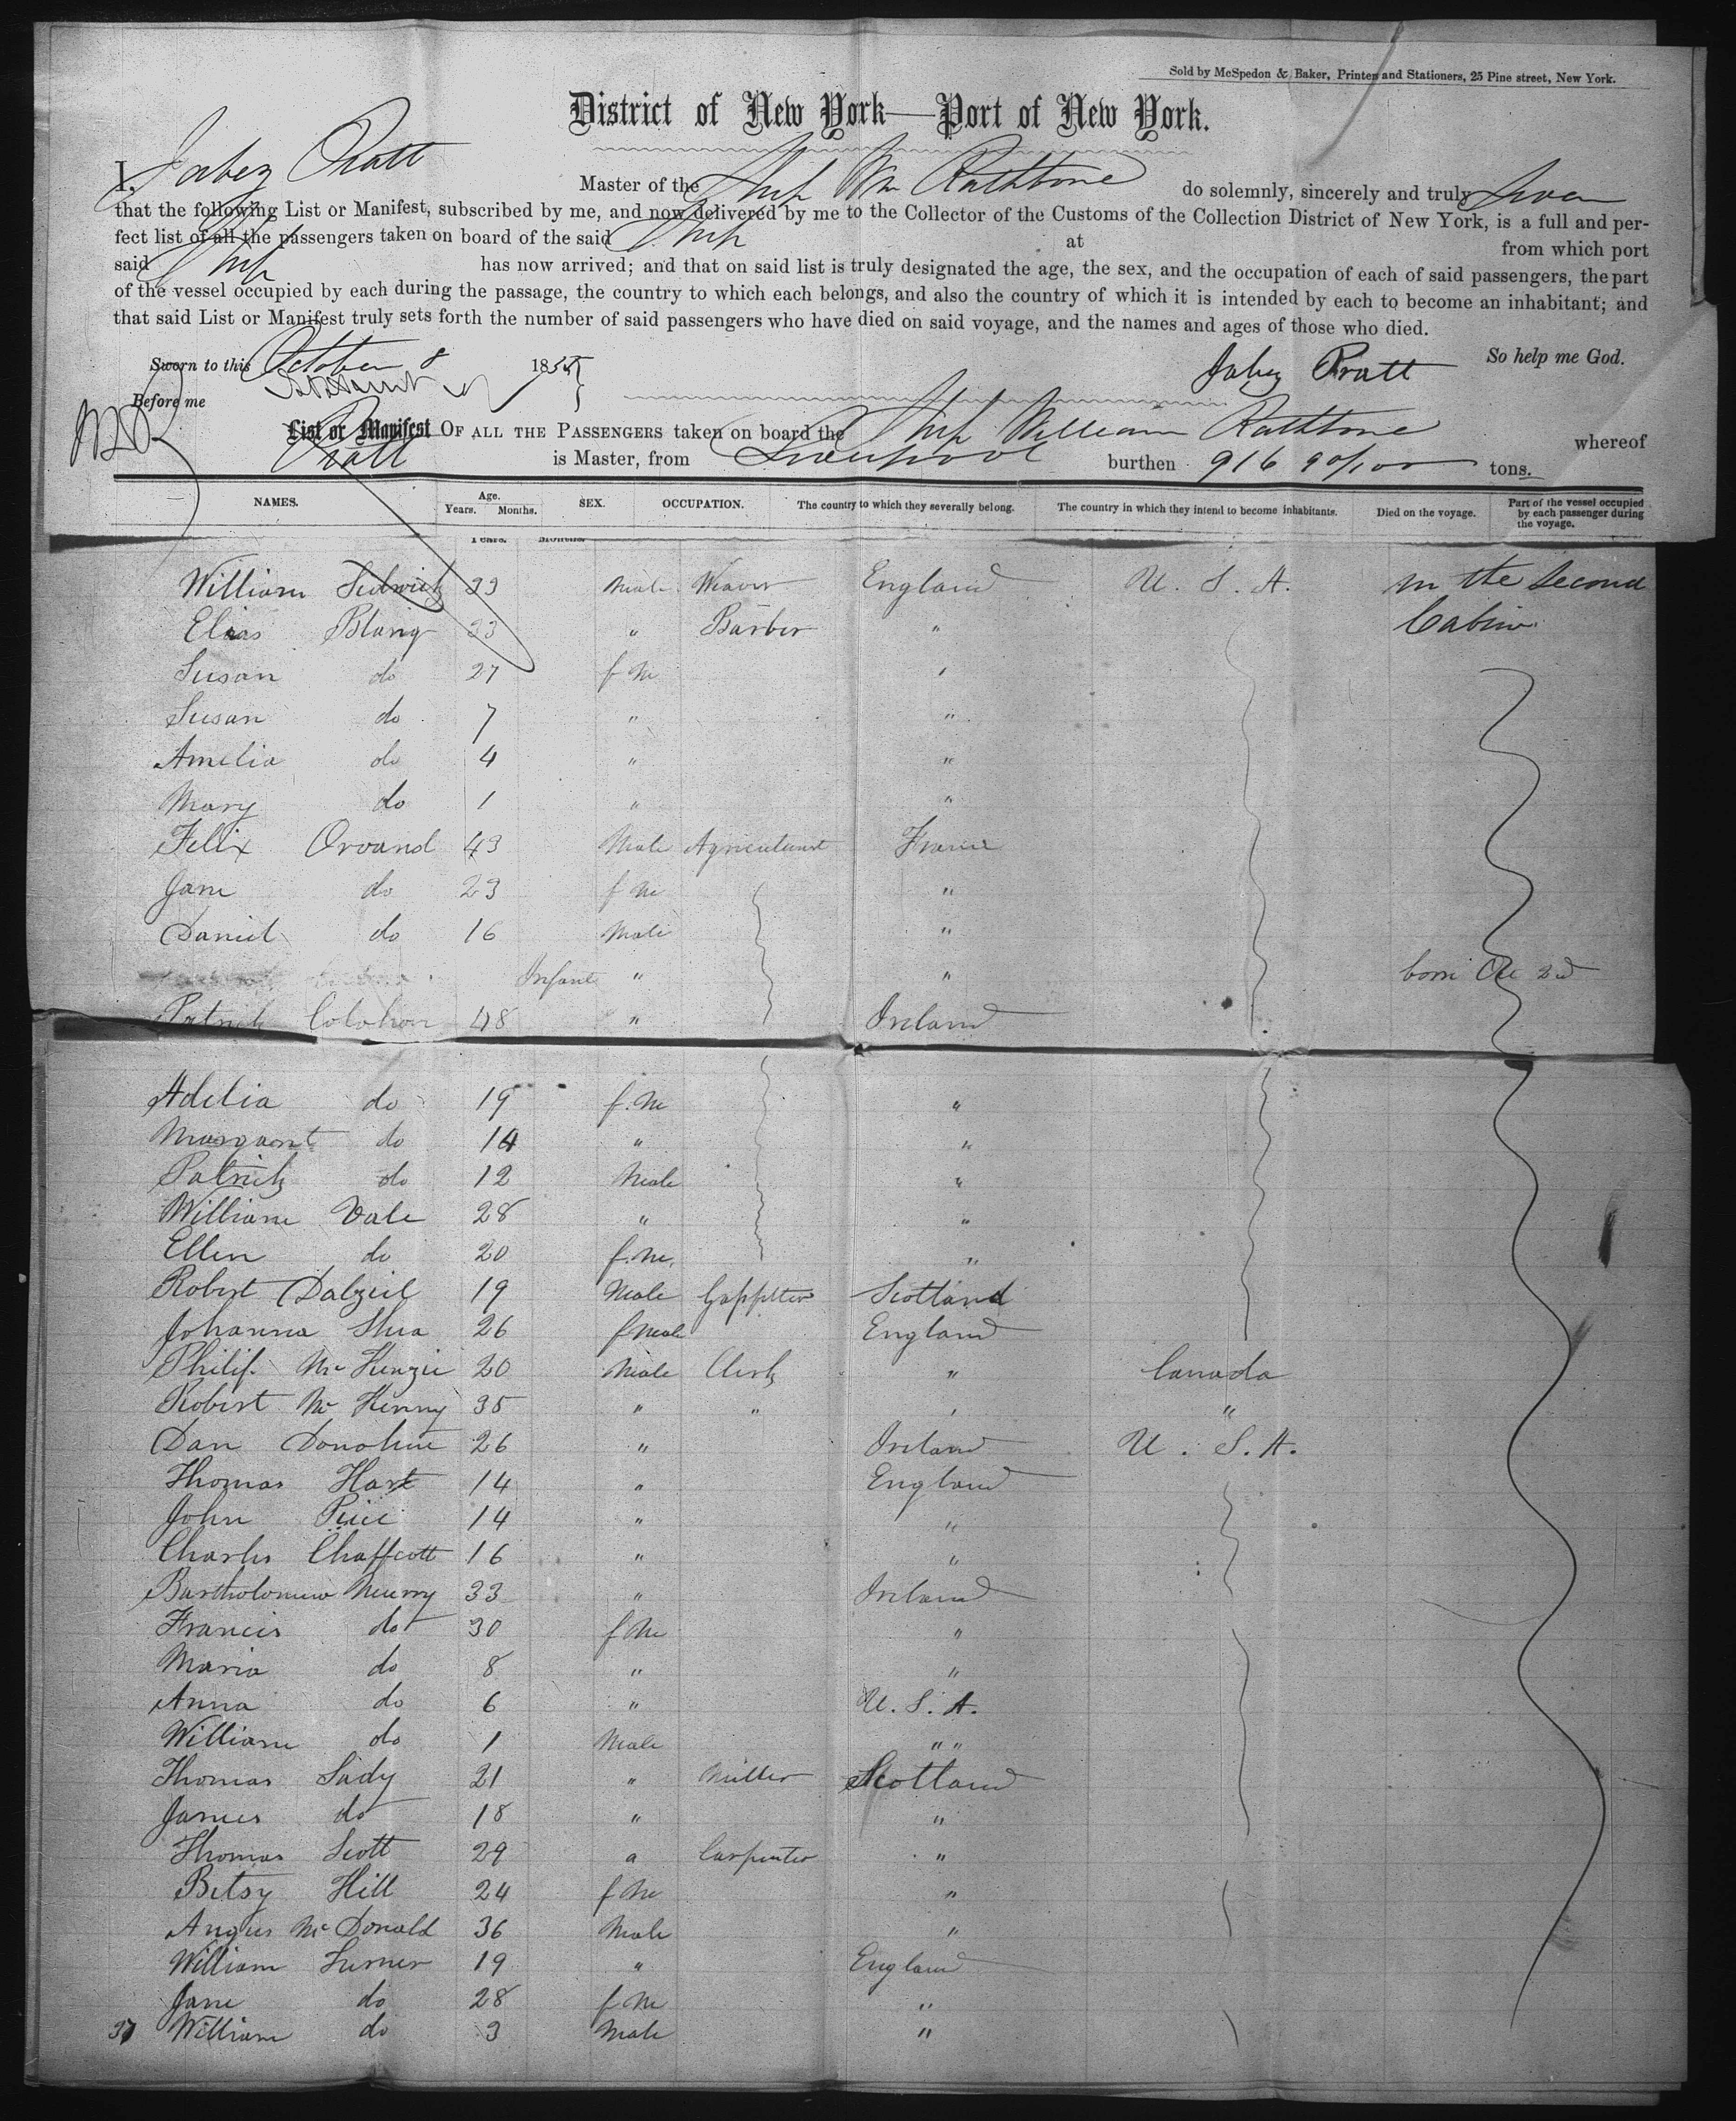 Sold by McSpedon & Baker, Printers and Stationers, 25 Pine street, New York.
District of New York—Port of New York.
I, Jabez Pratt Master of the Ship Wm Rathbone do solemnly, sincerely and truly swear
that the following List or Manifest, subscribed by me, and now delivered by me to the Collector of the Customs of the Collection District of New York, is a full and per-
fect list of all the passengers taken on board of the said Ship at from which port
said Ship has now arrived; and that on said list is truly designated the age, the sex, and the occupation of each of said passengers, the part
of the vessel occupied by each during the passage, the country to which each belongs, and also the country of which it is intended by each to become an inhabitant; and
that said List or Manifest truly sets forth the number of said passengers who have died on said voyage, and the names and ages of those who died.
So help me God.
Sworn to this October 8 185 Jabez Pratt
Before me
List or Manifest OF ALL THE PASSENGERS taken on board the Ship William Rathbone whereof
Pratt is Master, from Liverpool burthen 916 90/100 tons.
NAMES. Age. Years. Months. SEX. OCCUPATION. The country to which they severally belong. The country in which they intend to become inhabitants. Died on the voyage. Part of the vessel occupied by each passenger during the voyage.
Years. Months.
William 33 Male Weaver England U. S. A. In the Second
Elias Blang 33 " Barber " Cabin
Susan do 27 f m "
Susan do 7 " "
Amelia do 4 " "
Mary do 1 " "
Felix Orvand 43 Male Agriculturist France
Jane do 23 f m "
Daniel do 16 Male "
Infant " " born Oct 2d
Patrick Colohon 48 " Ireland
Adelia do 19 f. m "
Margaret do 14 " "
Patrick do 12 Male "
William Vale 28 " "
Ellen do 20 f. m. "
Robert Dalzeil 19 Male Gasfitter Scotland
Johanna Shea 26 fmale England
Philip McKenzie 20 Male Clerk " Canada
Robert McKenny 35 " " " "
Dan Donohue 26 " Ireland U. S. A.
Thomas Hart 14 " England
John Price 14 " "
Charles Chaffcott 16 " "
Bartholomew Murry 33 " Ireland
Francis do 30 f m "
Maria do 8 " "
Anna do 6 " U. S. A.
William do 1 Male " "
Thomas Lady 21 " Miller Scotland
James do 18 " "
Thomas Scott 29 " Carpenter "
Betsy Hill 24 f m "
Angus McDonald 36 Male "
William Turner 19 " England
Jane do 28 f m "
37 William do 3 Male "